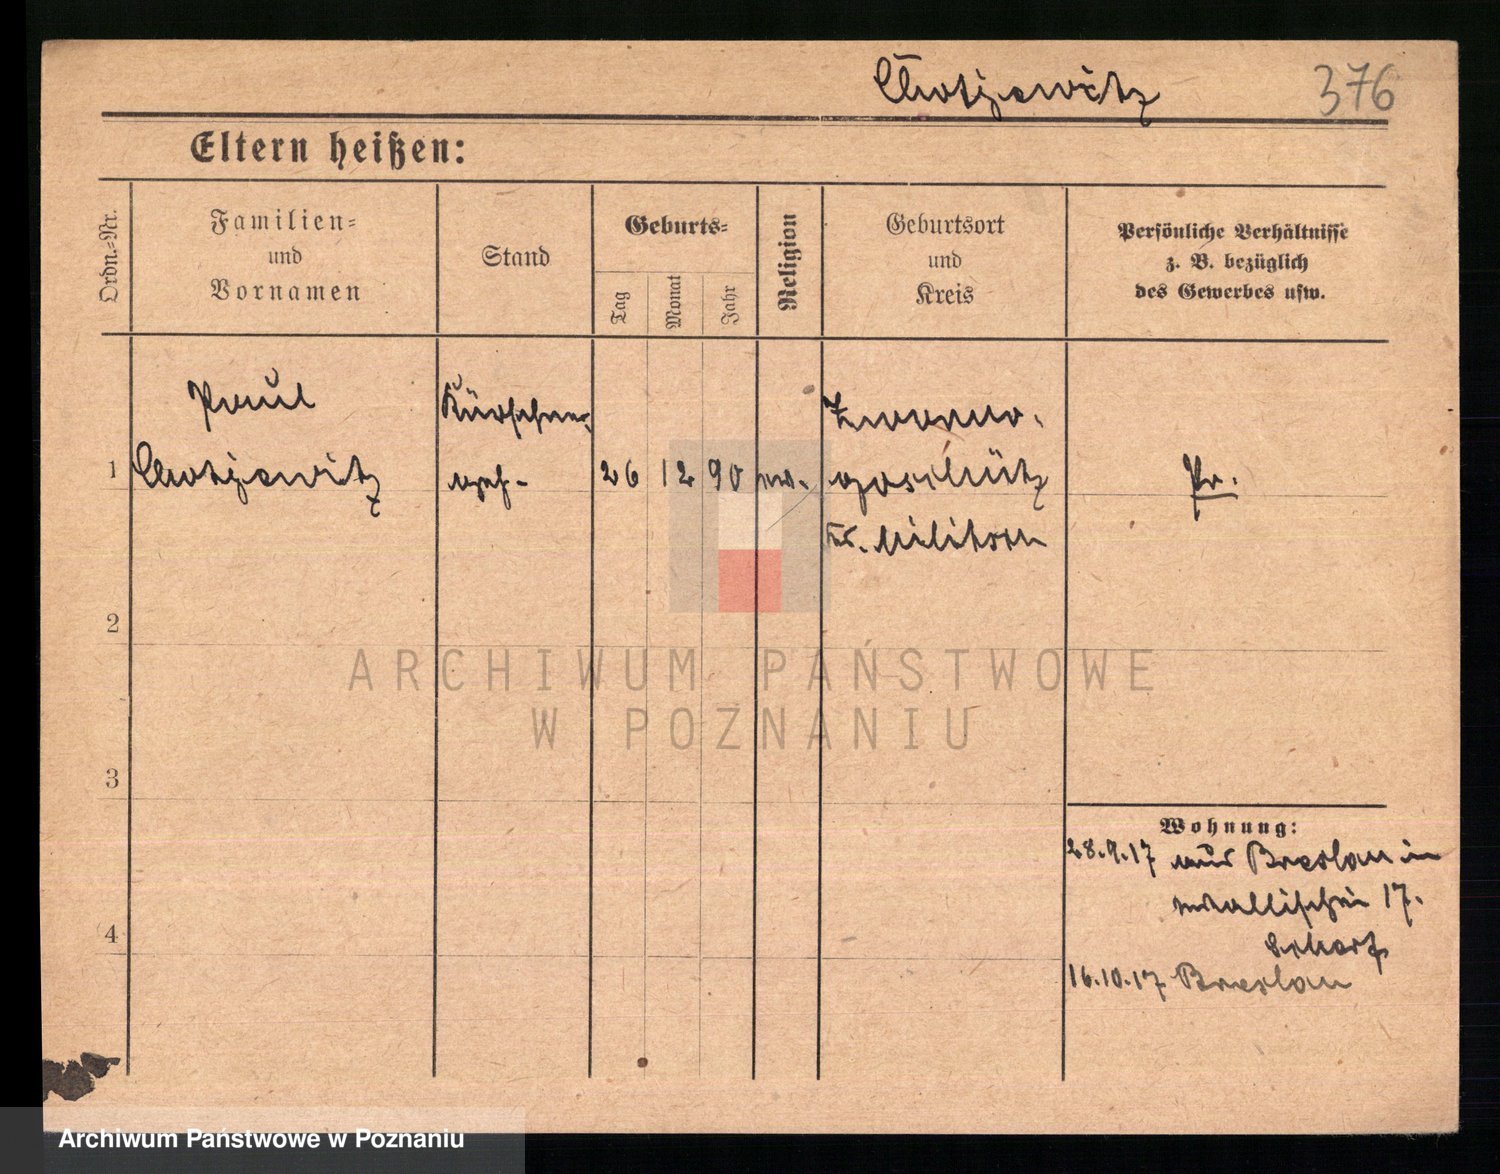 Chotzewitz 376
Eltern heißen:
Ordn.=Nr.
Familien=
und
Vornamen
Stand
Geburts=
Tag
Monat
Jahr
Religion
Geburtsort
und
Kreis
Persönliche Verhältnisse
z. B. bezüglich
des Gewerbes usw.
1
Paul
Chotzewitz
Kürschner
geh.
26 12 90
ev.
goschütz
Kr. Militsch
Pr.
2
3
4
Wohnung:
28.9.17 aus Breslau in
Wallischei 17.
16.10.17 Breslau
ARCHIWUM PAŃSTWOWE
W POZNANIU
Archiwum Państwowe w Poznaniu